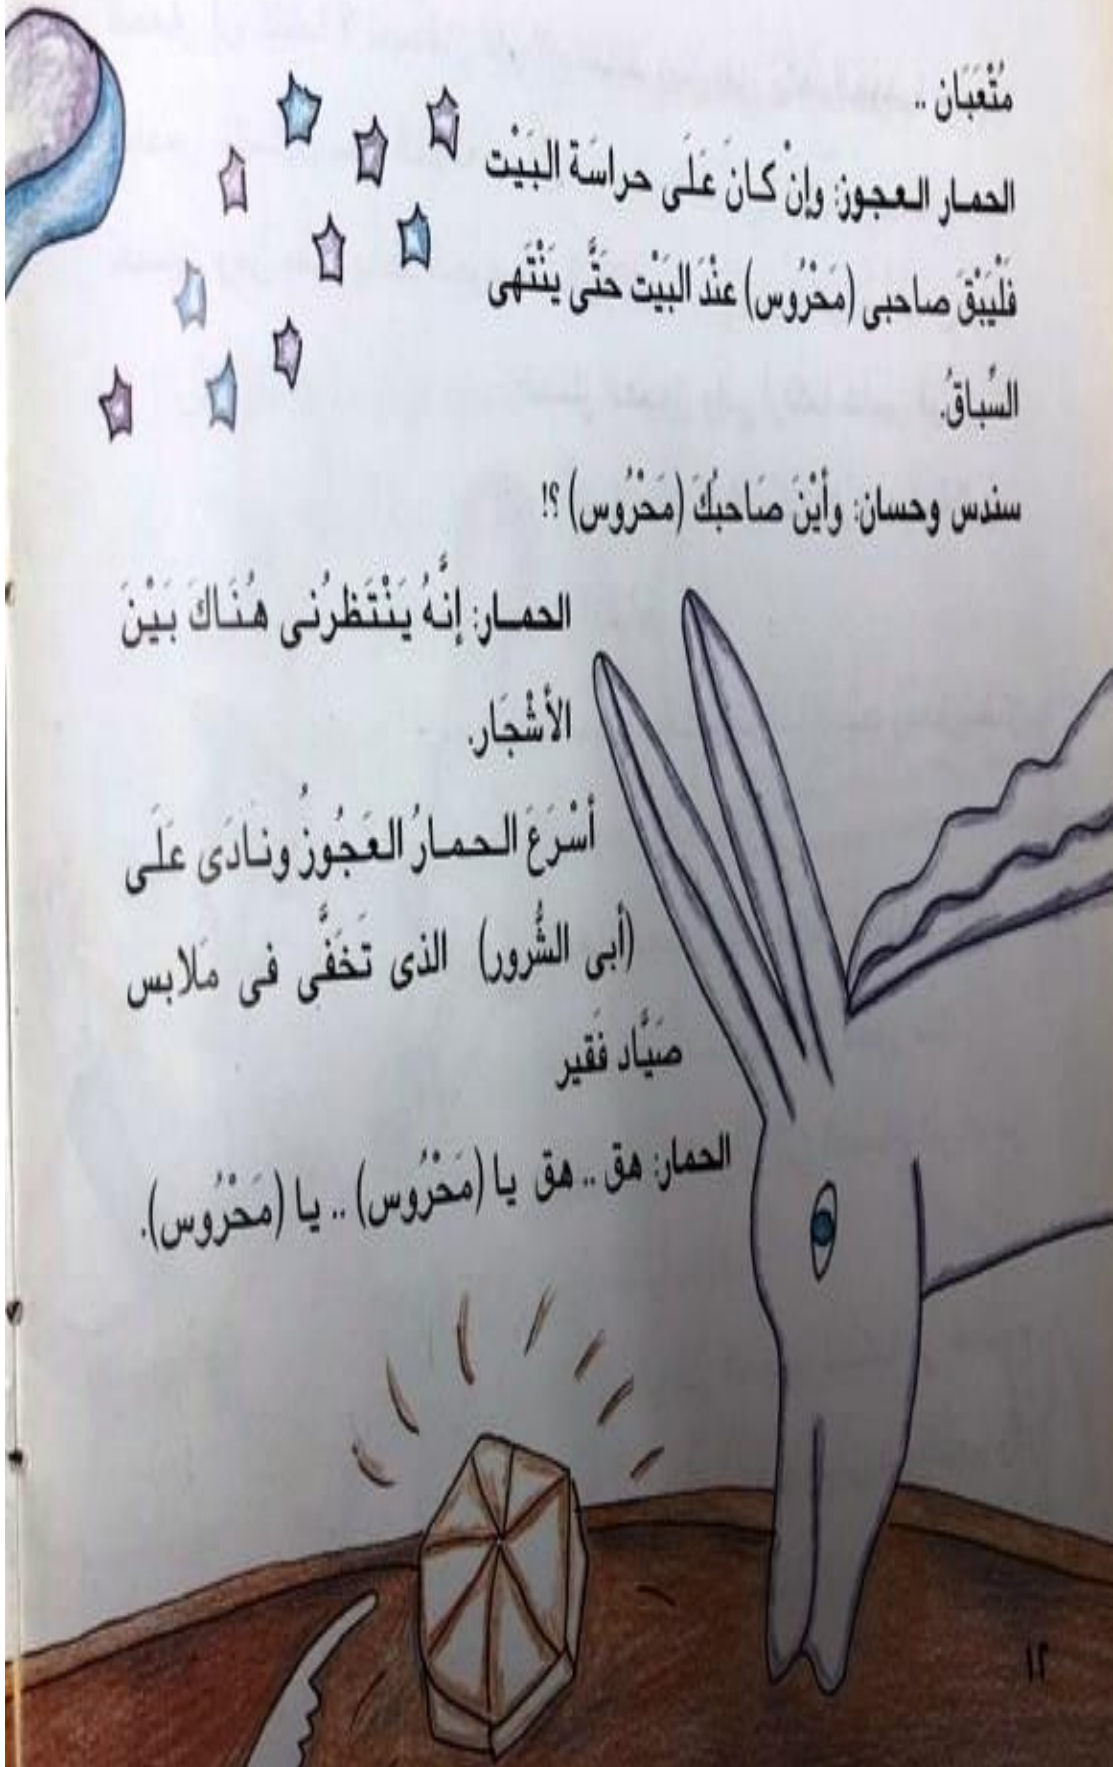 مُتْعَبَان ..
الحمـار العـجوز: وإنْ كـانَ عَلَى حراسَة البَيْت
فَلْيَبْقَ صاحبى (مَحْرُوس) عنْدَ البَيْت حَتَّى يَنْتَهى
السِّباقُ.
سندس وحسان: وأيْنَ صَاحبُكَ (مَحْرُوس) ؟!
الحمـار: إنَّهُ يَنْتَظرُنى هُنَاكَ بَيْنَ
الأشْجَار.
أسْرَعَ الحمـارُ العَجُوزُ ونـادَى عَلَى
(أبى الشُّرور) الذى تَخَفَّى فى مَلابس
صَيَّاد فَقير
الحمار: هق .. هق يا (مَحْرُوس) .. يا (مَحْرُوس).
١٢